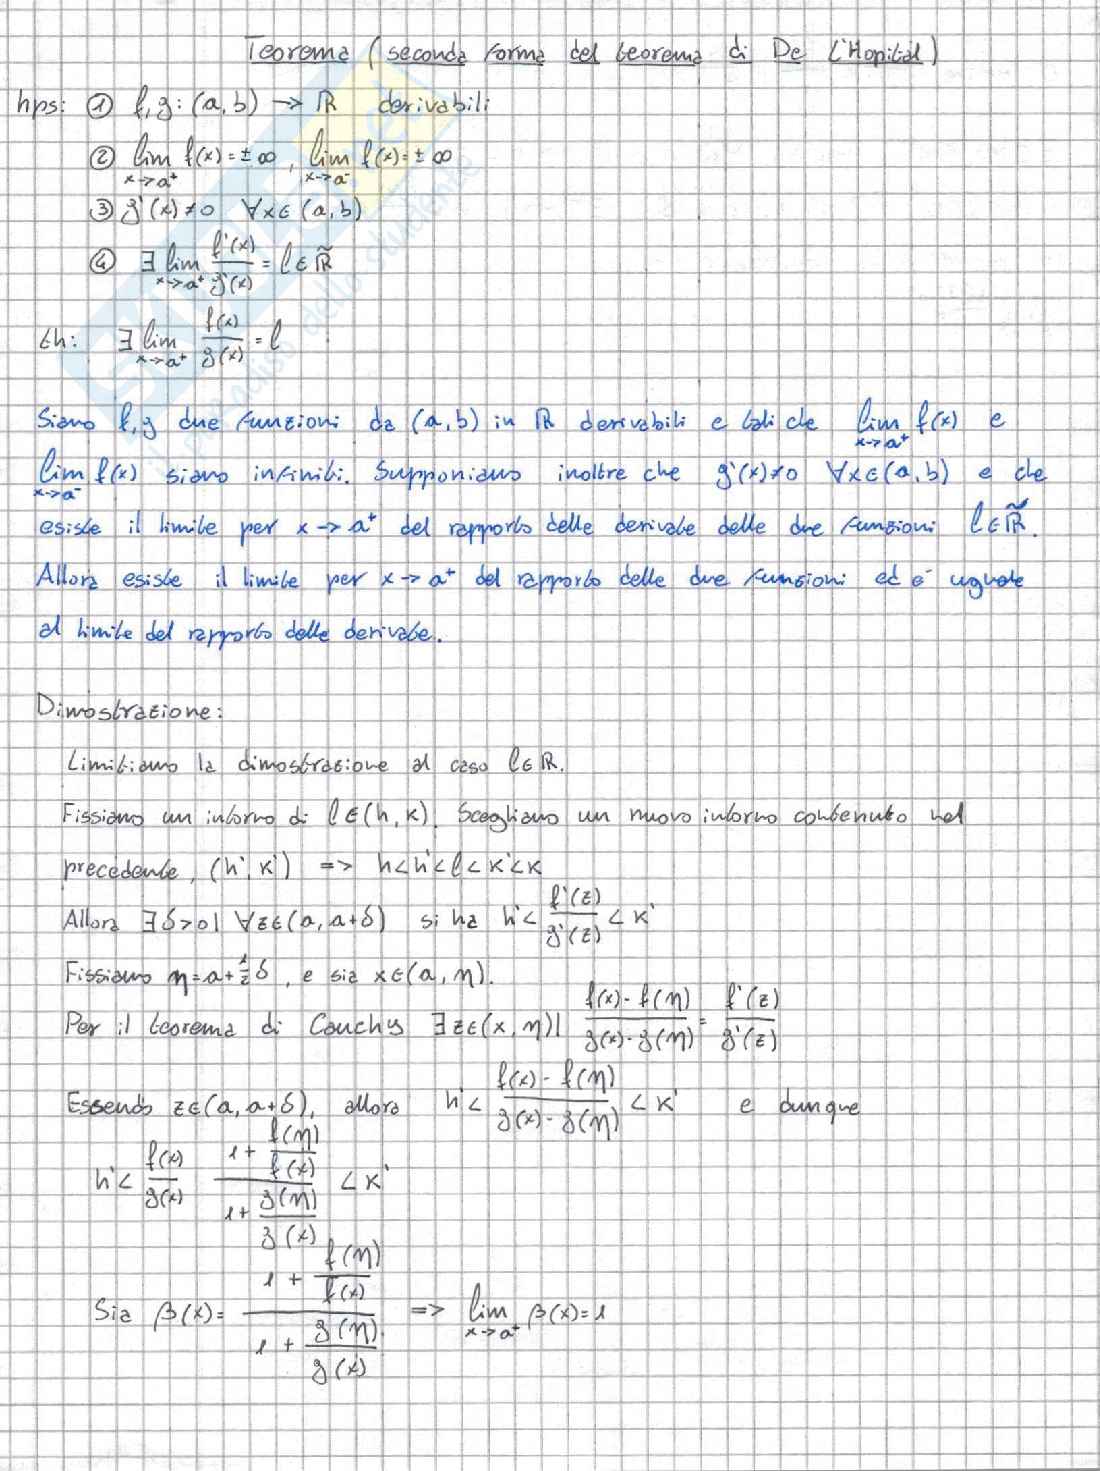 Teorema (seconda forma del teorema di De L'Hopital)
hps: ① f,g: (a,b) → ℝ derivabili
② lim x→a⁺ f(x) = ±∞, lim x→a⁻ f(x) = ±∞
③ g'(x)≠0 ∀x∈(a,b)
④ ∃ lim x→a⁺ f'(x)/g'(x) = l∈ℝ̃
th: ∃ lim x→a⁺ f(x)/g(x) = l
Siano f,g due funzioni da (a,b) in ℝ derivabili e tali che lim x→a⁺ f(x) e
lim x→a⁻ f(x) siano infiniti. Supponiamo inoltre che g'(x)≠0 ∀x∈(a,b) e che
esiste il limite per x→a⁺ del rapporto delle derivate delle due funzioni l∈ℝ̃.
Allora esiste il limite per x→a⁺ del rapporto delle due funzioni ed è uguale
al limite del rapporto delle derivate.
Dimostrazione:
Limitiamo la dimostrazione al caso l∈ℝ.
Fissiamo un intorno di l∈(h,k). Scegliamo un nuovo intorno contenuto nel
precedente, (h',k') => h<h'<l<k'<k
Allora ∃δ>0| ∀z∈(a,a+δ) si ha h'< f'(z)/g'(z) <k'
Fissiamo η=a+½δ, e sia x∈(a,η).
Per il teorema di Cauchy ∃z∈(x,η)| (f(x)-f(η))/(g(x)-g(η)) = f'(z)/g'(z)
Essendo z∈(a,a+δ), allora h'< (f(x)-f(η))/(g(x)-g(η)) <k' e dunque
h'< f(x)/g(x) (1+f(η)/f(x))/(1+g(η)/g(x)) <k'
Sia β(x)= (1+f(η)/f(x))/(1+g(η)/g(x)) => lim x→a⁺ β(x)=1